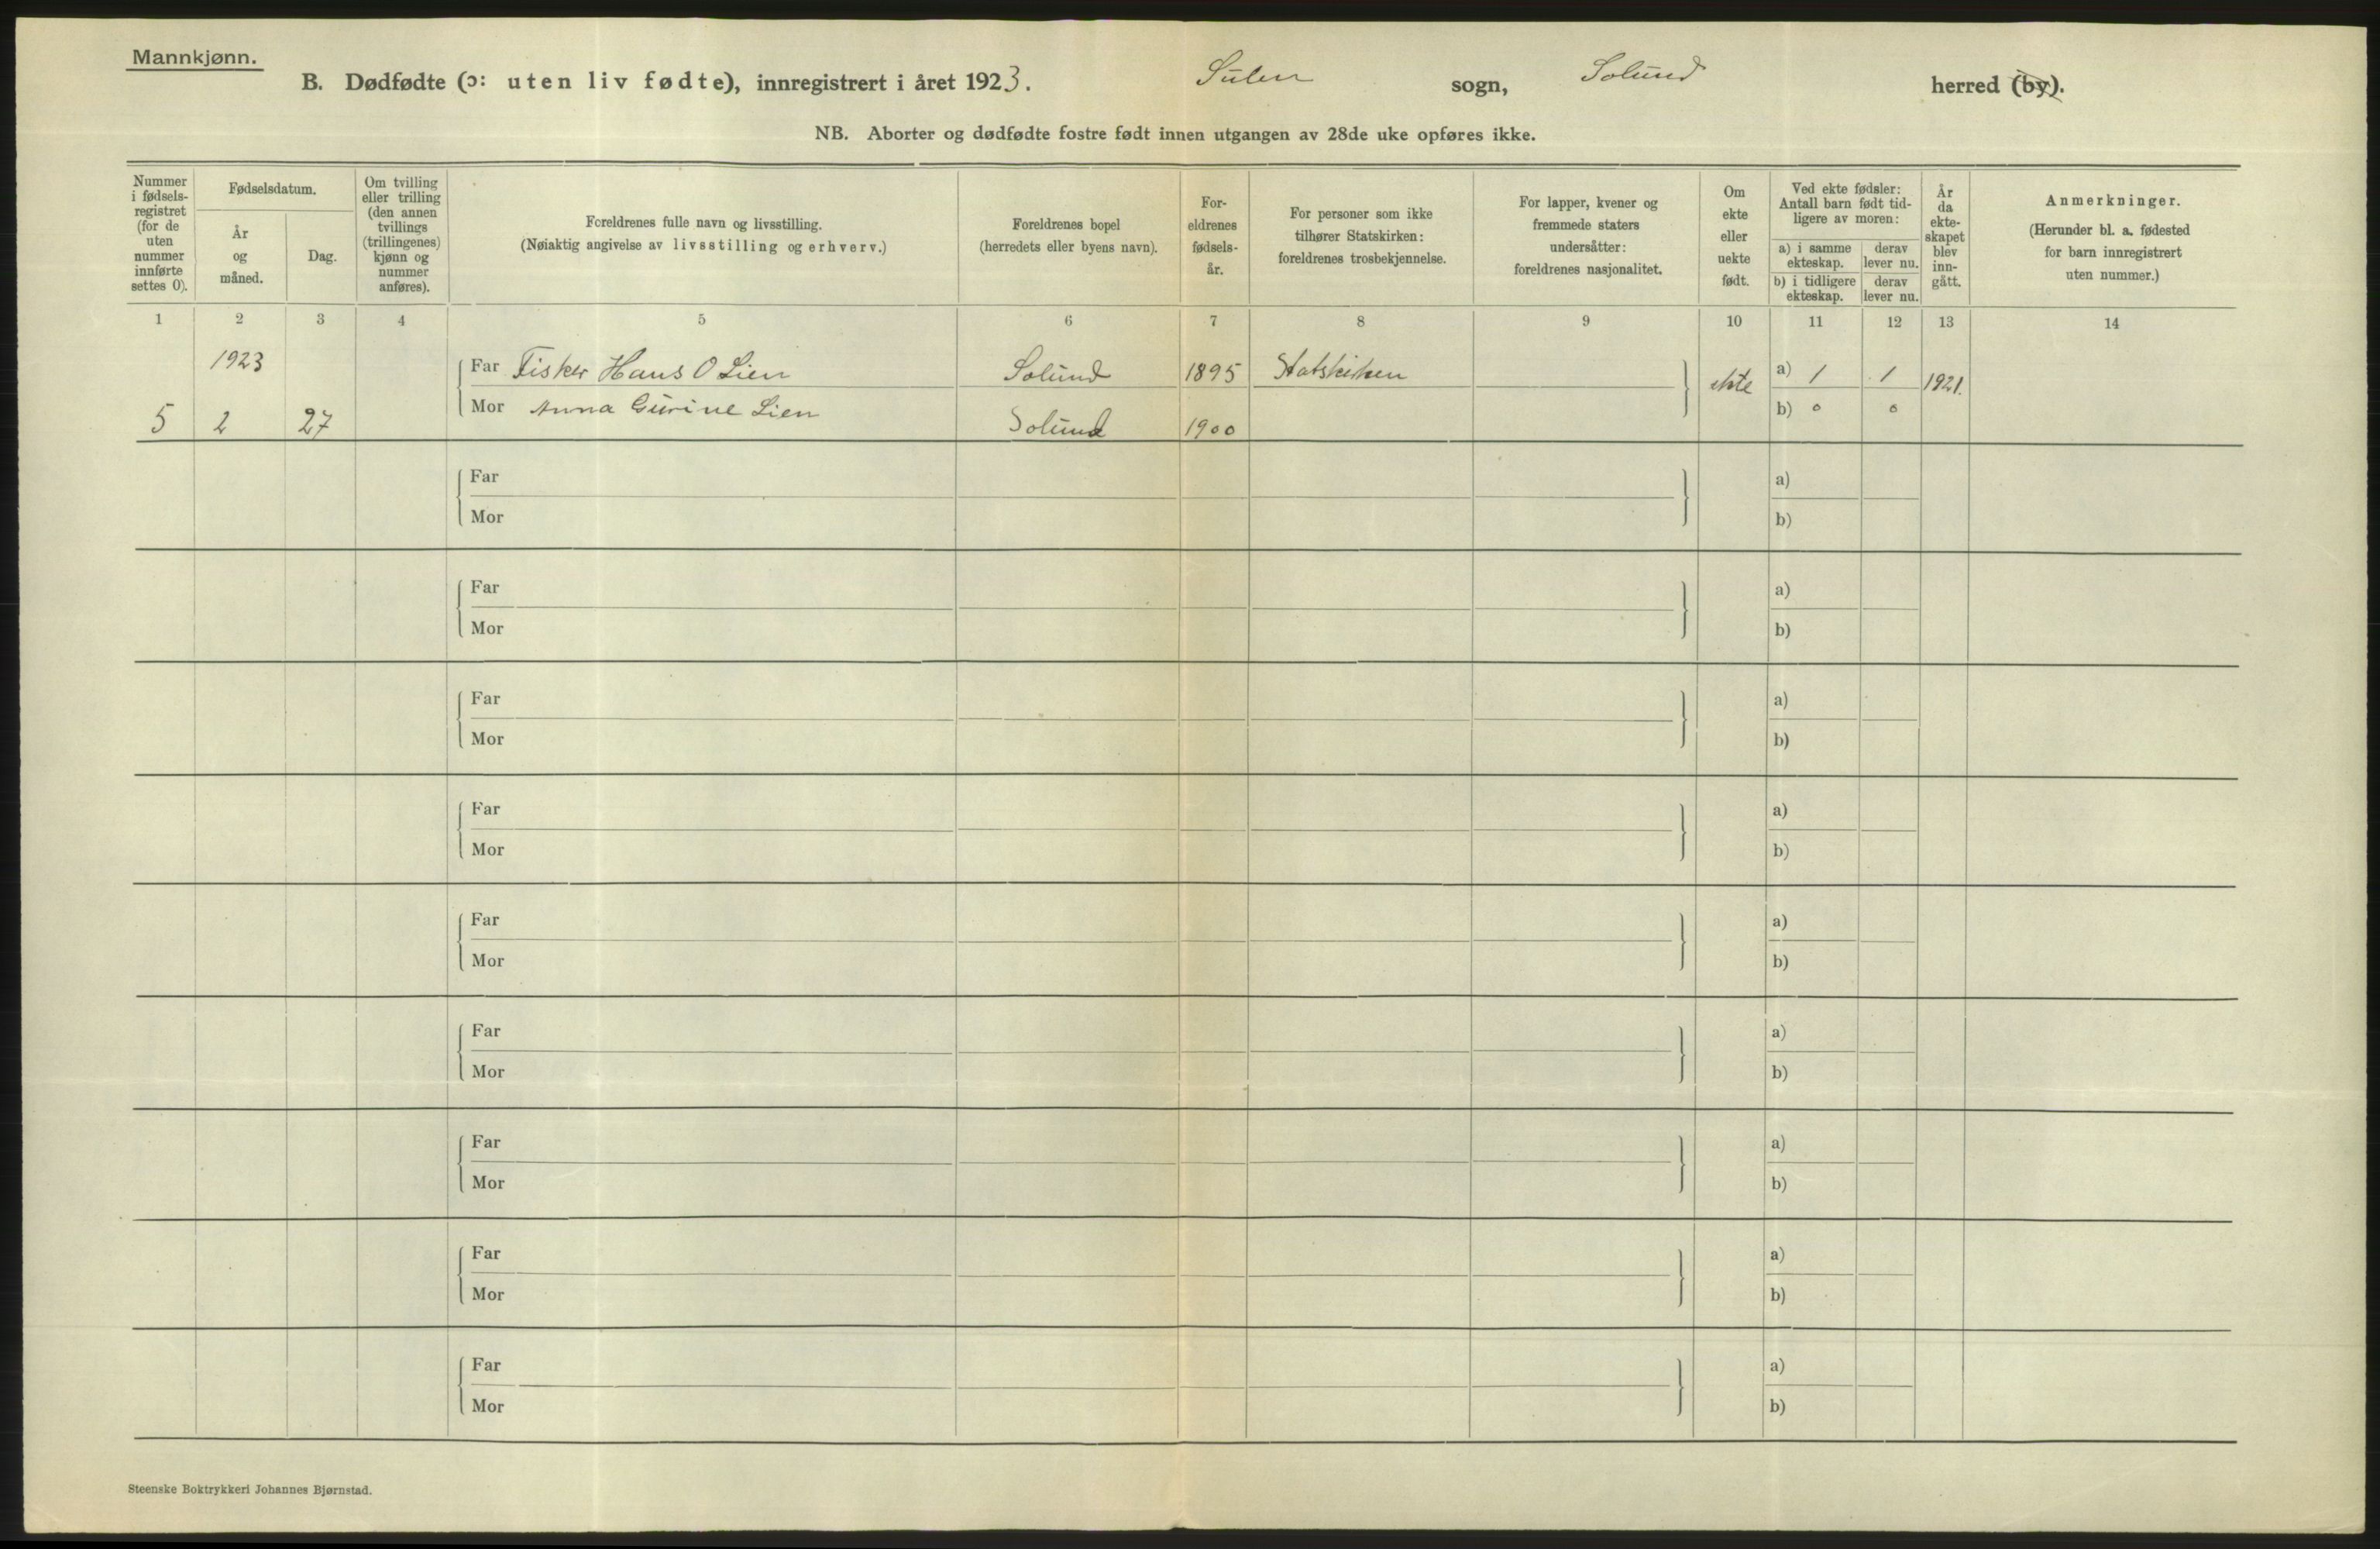 Mannkjønn.
B. Dødfødte (ɔ: uten liv fødte), innregistrert i året 1923. Sulen sogn, Solund herred (by).
NB. Aborter og dødfødte fostre født innen utgangen av 28de uke opføres ikke.
Nummer
i fødsels-
registret
(for de
uten
nummer
innførte
settes 0).
Fødselsdatum.
År
og
måned.
Dag.
Om tvilling
eller trilling
(den annen
tvillings
(trillingenes)
kjønn og
nummer
anføres).
Foreldrenes fulle navn og livsstilling.
(Nøiaktig angivelse av livsstilling og erhverv.)
Foreldrenes bopel
(herredets eller byens navn).
For-
eldrenes
fødsels-
år.
For personer som ikke
tilhører Statskirken:
foreldrenes trosbekjennelse.
For lapper, kvener og
fremmede staters
undersåtter:
foreldrenes nasjonalitet.
Om
ekte
eller
uekte
født.
Ved ekte fødsler:
Antall barn født tid-
ligere av moren:
a) i samme
ekteskap.
derav
lever nu.
b) i tidligere
ekteskap.
derav
lever nu.
År
da
ekte-
skapet
blev
inn-
gått.
Anmerkninger.
(Herunder bl. a. fødested
for barn innregistrert
uten nummer.)
1 2 3 4 5 6 7 8 9 10 11 12 13 14
1923 Far Fisker Hans O Lien Solund 1895 Statskirken ekte a) 1 1 1921.
5 2 27 Mor Anna Gurine Lien Solund 1900 b) 0 0
Far a)
Mor b)
Far a)
Mor b)
Far a)
Mor b)
Far a)
Mor b)
Far a)
Mor b)
Far a)
Mor b)
Far a)
Mor b)
Far a)
Mor b)
Far a)
Mor b)
Steenske Boktrykkeri Johannes Bjørnstad.